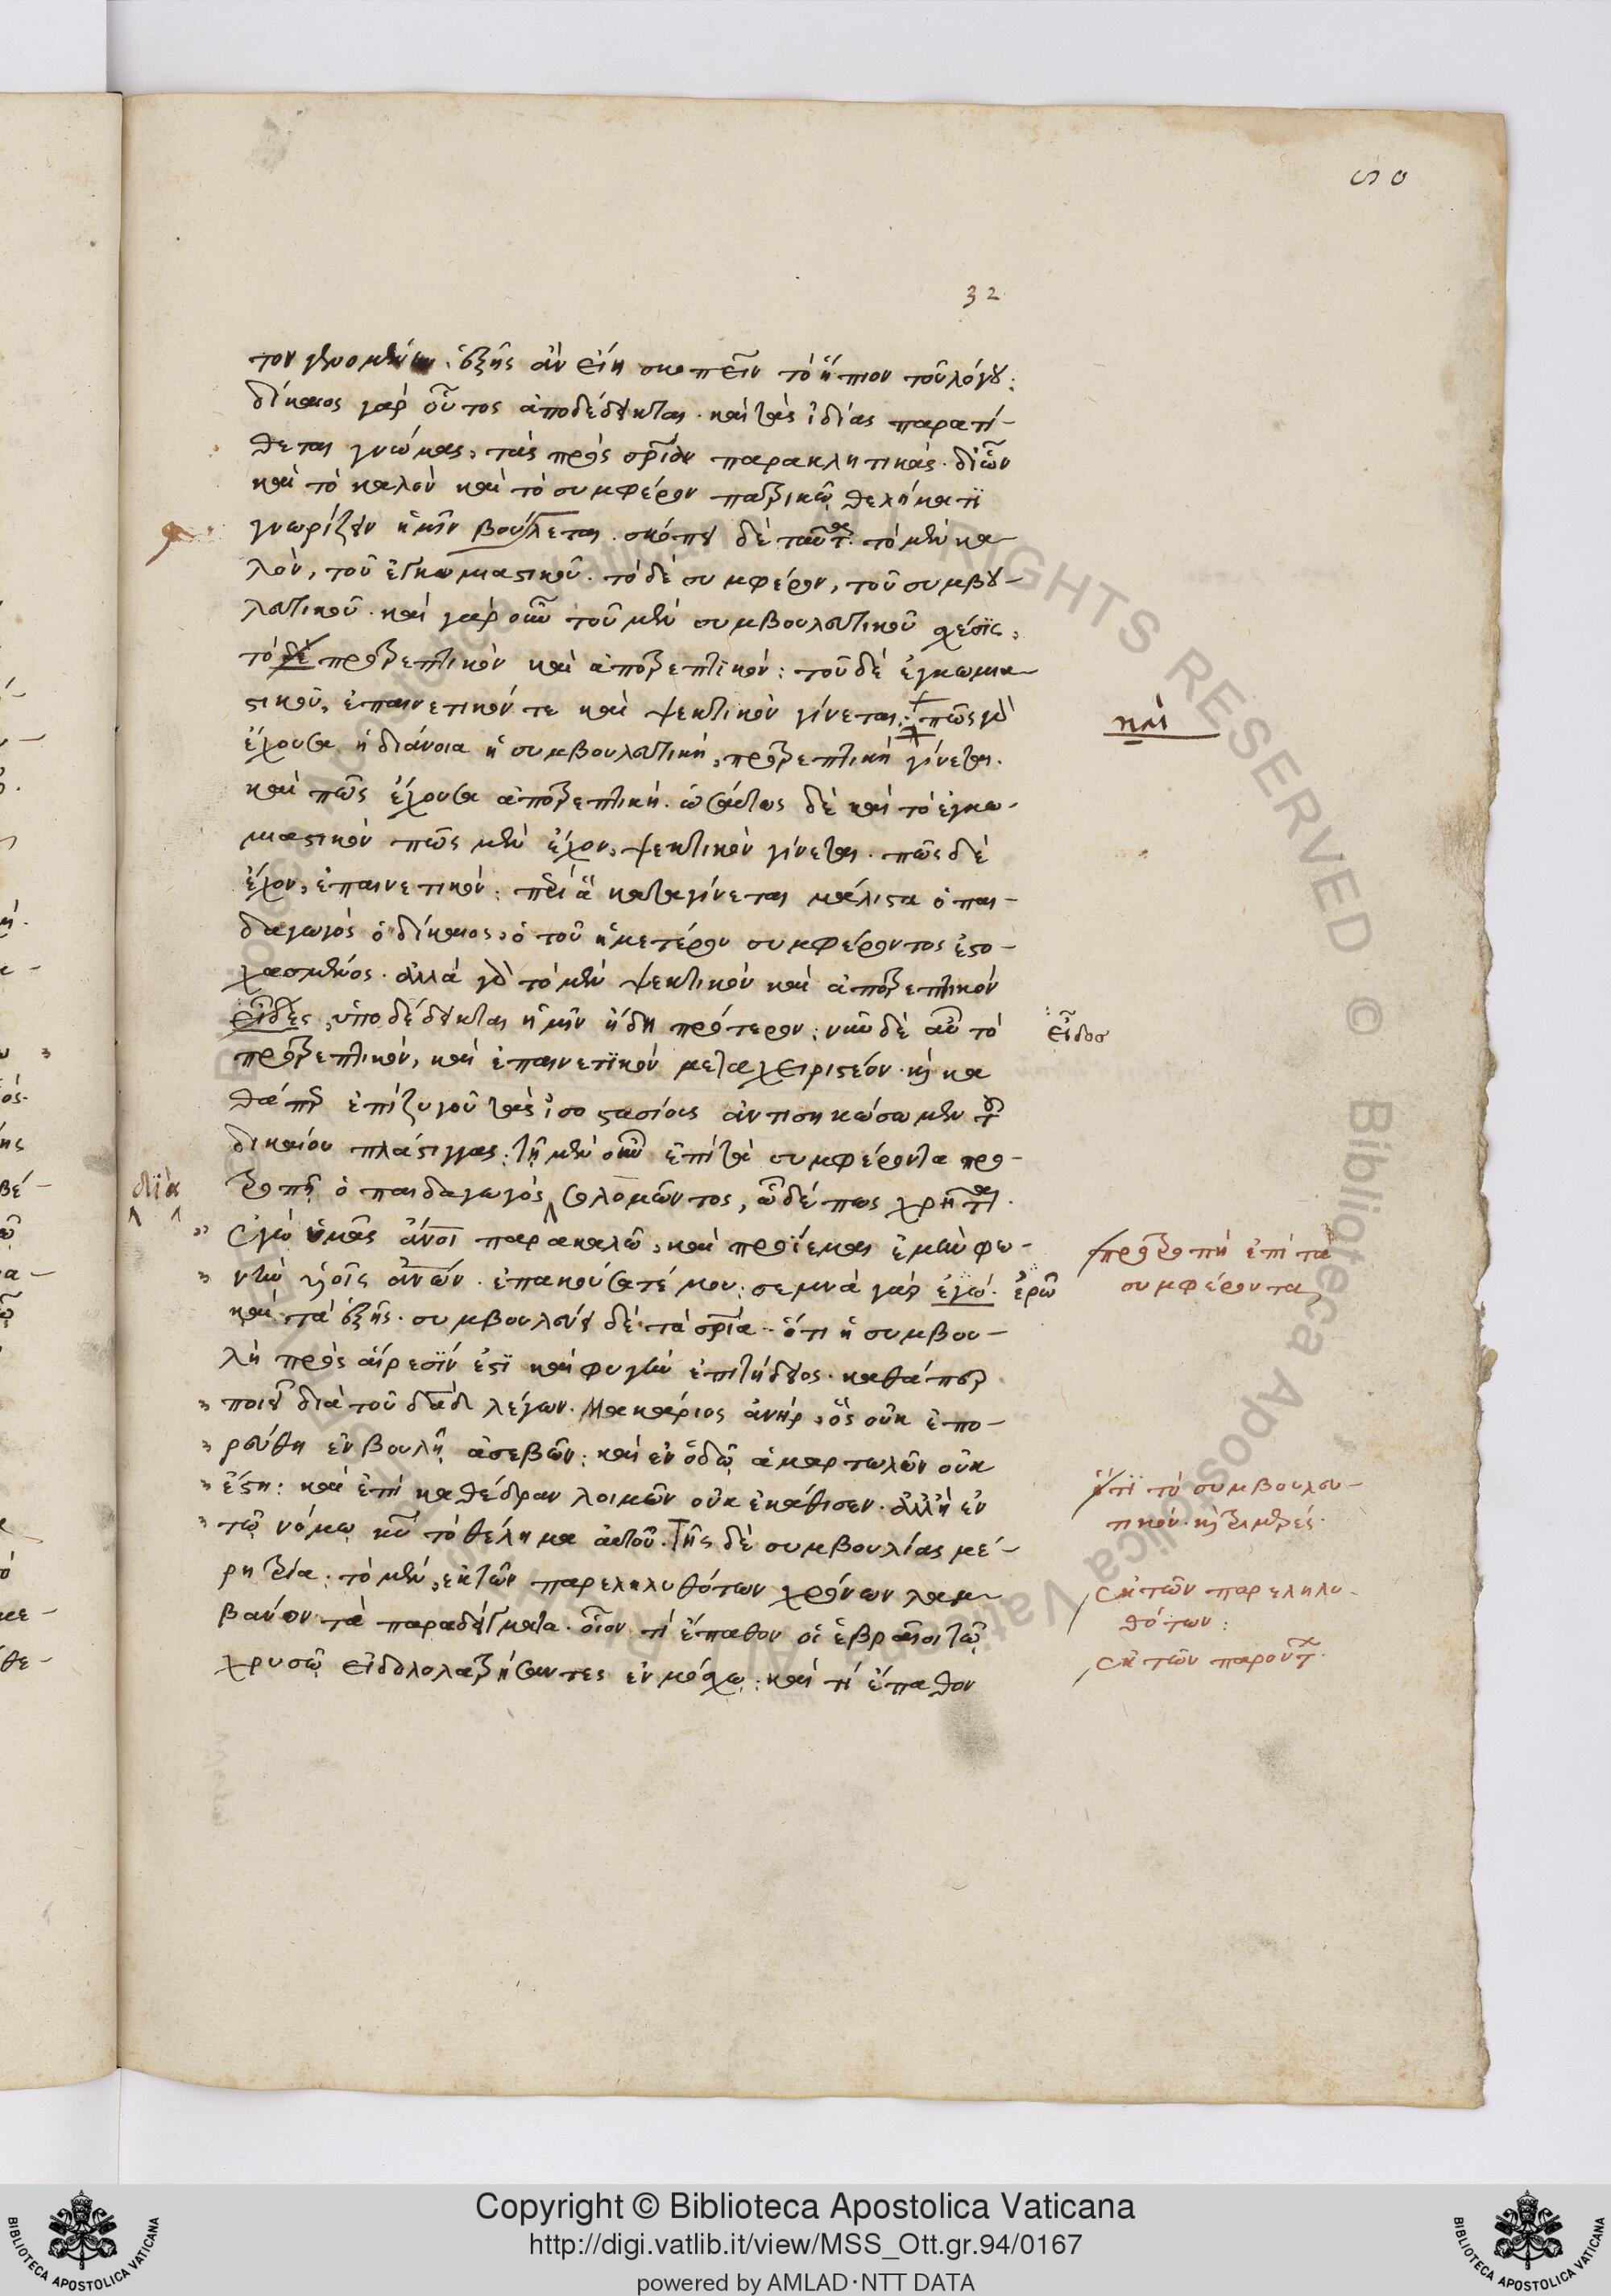 32
τον γενομένων. ἑξῆς ἂν εἴη σκοπεῖν τὸ ἤπιον τοῦ λόγου:
δίκαιος γὰρ οὗτος ἀποδέδεικται. καὶ τὰς ἰδίας παρατί-
θεται γνώμας, τὰς πρὸς σρίαν παρακλητικάς. δι' ὧν
καὶ τὸ καλὸν καὶ τὸ συμφέρον πατρικῷ θελήματι
γνωρίζειν ἡμῖν βούλεται. σκόπει δὲ ταῦτα. τὸ μὲν κα
λὸν, τοῦ ἐγκωμιαστικοῦ. τὸ δὲ συμφέρον, τοῦ συμβου-
λευτικοῦ. καὶ γὰρ οὖν τοῦ μὲν συμβουλευτικοῦ
τὸ δε προτρεπτικὸν καὶ ἀποτρεπτικόν: τοῦ δὲ ἐγκωμια-
στικοῦ, ἐπαινετικόν τε καὶ ψεκτικὸν γίνεται: πῶς γὰρ
καὶ
ἔχουσα ἡ διάνοια ἡ συμβουλευτικὴ, προτρεπτικὴ γίνεται.
καὶ πῶς ἔχουσα ἀποτρεπτική. ὡσαύτως δὲ καὶ τὸ ἐγκω-
μιαστικὸν πῶς μὲν ἔχον, ψεκτικὸν γίνεται. πῶς δὲ
ἔχον, ἐπαινετικόν: περὶ ἃ καταγίνεται μάλιστα ὁ παι-
δαγωγὸς ὁ δίκαιος, ὁ τοῦ ἡμετέρου συμφέροντος ἐστο-
χασμένος. ἀλλὰ γὰρ τὸ μὲν ψεκτικὸν καὶ ἀποτρεπτικὸν
εἶδες, ὑποδέδεικται ἡμῖν ἤδη πρότερον: νῦν δὲ αὖ τὸ
εἶδος
προτρεπτικὸν, καὶ ἐπαινετικὸν μεταχειριστέον. καὶ κα
θάπερ ἐπὶ ζυγοῦ τὰς ἰσοστασίους ἀντισηκώσωμεν τοῦ
δικαίου πλάστιγγας: τῇ μὲν οὖν ἐπὶ τὰ συμφέροντα προ-
τροπῇ ὁ παιδαγωγὸς σολομῶντος, ὧδέ πως χρῆται.
διὰ
ἐγὼ ὑμᾶς ἄνοι παρακαλῶ, καὶ προΐεμαι ἐμὴν φω-
νὴν υἱοῖς ἀνῶν. ἐπακούσατέ μου: σεμνὰ γὰρ ἐγώ. ἐρῶ
προτροπὴ ἐπὶ τὰ
συμφέροντα
καὶ τὰ ἑξῆς. συμβουλεύει δὲ τὰ σρία. ὅτι ἡ συμβου-
λὴ πρὸς αἵρεσίν ἐστι καὶ φυγὴν ἐπιτήδειος. καθάπερ
ποιεῖ διὰ τοῦ δαδ λέγων. Μακάριος ἀνὴρ, ὃς οὐκ ἐπο-
ρεύθη ἐν βουλῇ ἀσεβῶν: καὶ ἐν ὁδῷ ἁμαρτωλῶν οὐκ
ἔστη: καὶ ἐπὶ καθέδραν λοιμῶν οὐκ ἐκάθισεν. ἀλλ' ἢ ἐν
ὅτι τὸ συμβουλευ-
τικὸν. καὶ τριμερές.
τῷ νόμῳ κυ τὸ θέλημα αὐτοῦ. Τῆς δὲ συμβουλίας μέ-
ρη τρία. τὸ μὲν, ἐκ τῶν παρεληλυθότων χρόνων λαμ-
ἐκ τῶν παρεληλυ-
θότων:
βανον τὰ παραδείγματα. οἷον τί ἔπαθον οἱ ἑβραῖοι τῷ
ἐκ τῶν παρόντων.
χρυσῷ εἰδολολατρήσαντες ἐν μόσχῳ: καὶ τί ἔπαθον
ALL RIGHTS RESERVED © Biblioteca Apostolica Vaticana
Copyright © Biblioteca Apostolica Vaticana
http://digi.vatlib.it/view/MSS_Ott.gr.94/0167
powered by AMLAD·NTT DATA
BIBLIOTECA APOSTOLICA VATICANA
BIBLIOTECA APOSTOLICA VATICANA